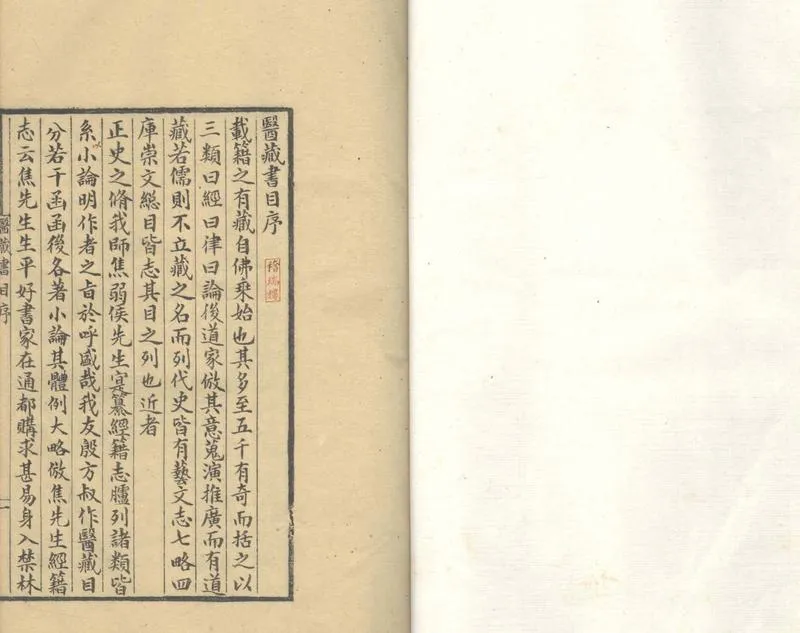 醫藏書目序
稽瑞樓
載籍之有藏自佛乘始也其多至五千有奇而括之以
三類曰經曰律曰論後道家倣其意蒐演推廣而有道
藏若儒則不立藏之名而列代史皆有藝文志七略四
庫崇文總目皆志其目之列也近者
正史之脩我師焦弱侯先生寔纂經籍志臚列諸類皆
系小論明作者之旨於呼盛哉我友殷方叔作醫藏目
分若干函函後各著小論其體例大略倣焦先生經籍
志云焦先生生平好書家在通都購求甚易身入禁林
醫藏書目序
一